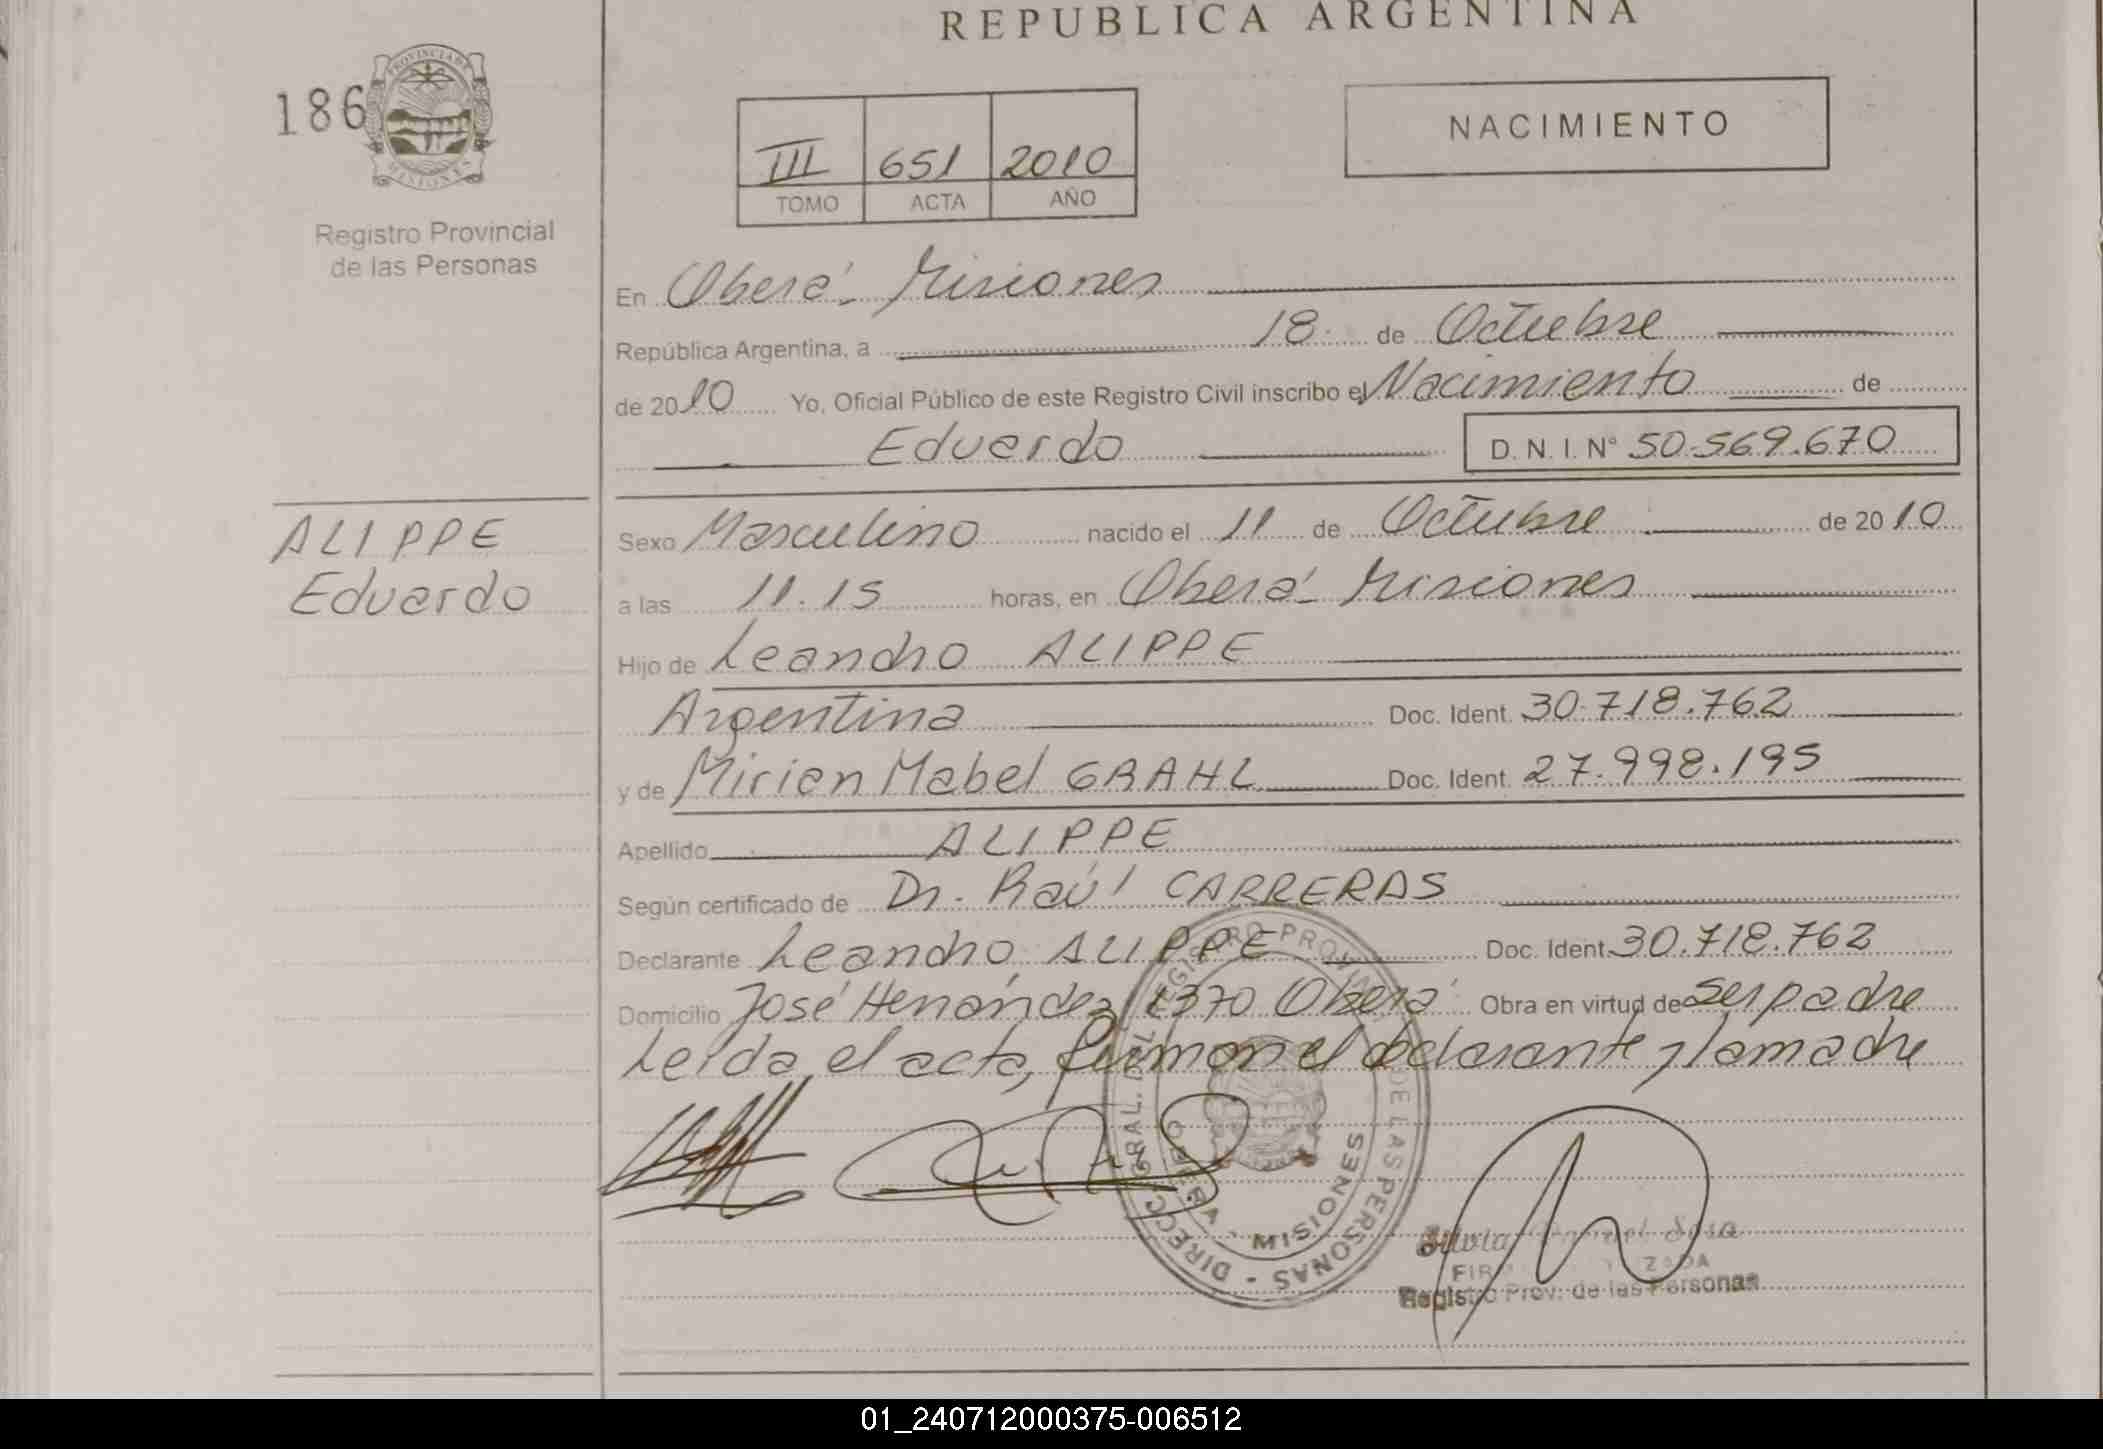 REPUBLICA ARGENTINA
186
PROVINCIA DE
MISIONES
Registro Provincial
de las Personas
III 651 2010
TOMO ACTA AÑO
NACIMIENTO
En Oberá - Misiones
República Argentina, a 18 de Octubre
de 2010 Yo, Oficial Público de este Registro Civil inscribo el Nacimiento de
Eduardo D. N. I. N° 50.569.670
ALIPPE
Eduardo
Sexo Masculino nacido el 11 de Octubre de 2010
a las 11.15 horas, en Oberá - Misiones
Hijo de Leandro ALIPPE
Argentina Doc. Ident. 30.718.762
y de Mirian Mabel GRAHL Doc. Ident. 27.998.195
Apellido ALIPPE
Según certificado de Dr. Raúl CARRERAS
Declarante Leandro ALIPPE Doc. Ident. 30.718.762
Domicilio José Hernández 1370 Oberá Obra en virtud de ser padre
Leída el acta, firman el declarante y la madre
DIRECC. GRAL. DEL REGISTRO PROVINCIAL DE LAS PERSONAS -
OBERA - MISIONES
Silvia Sosa
Registro Prov. de las Personas
01_240712000375-006512